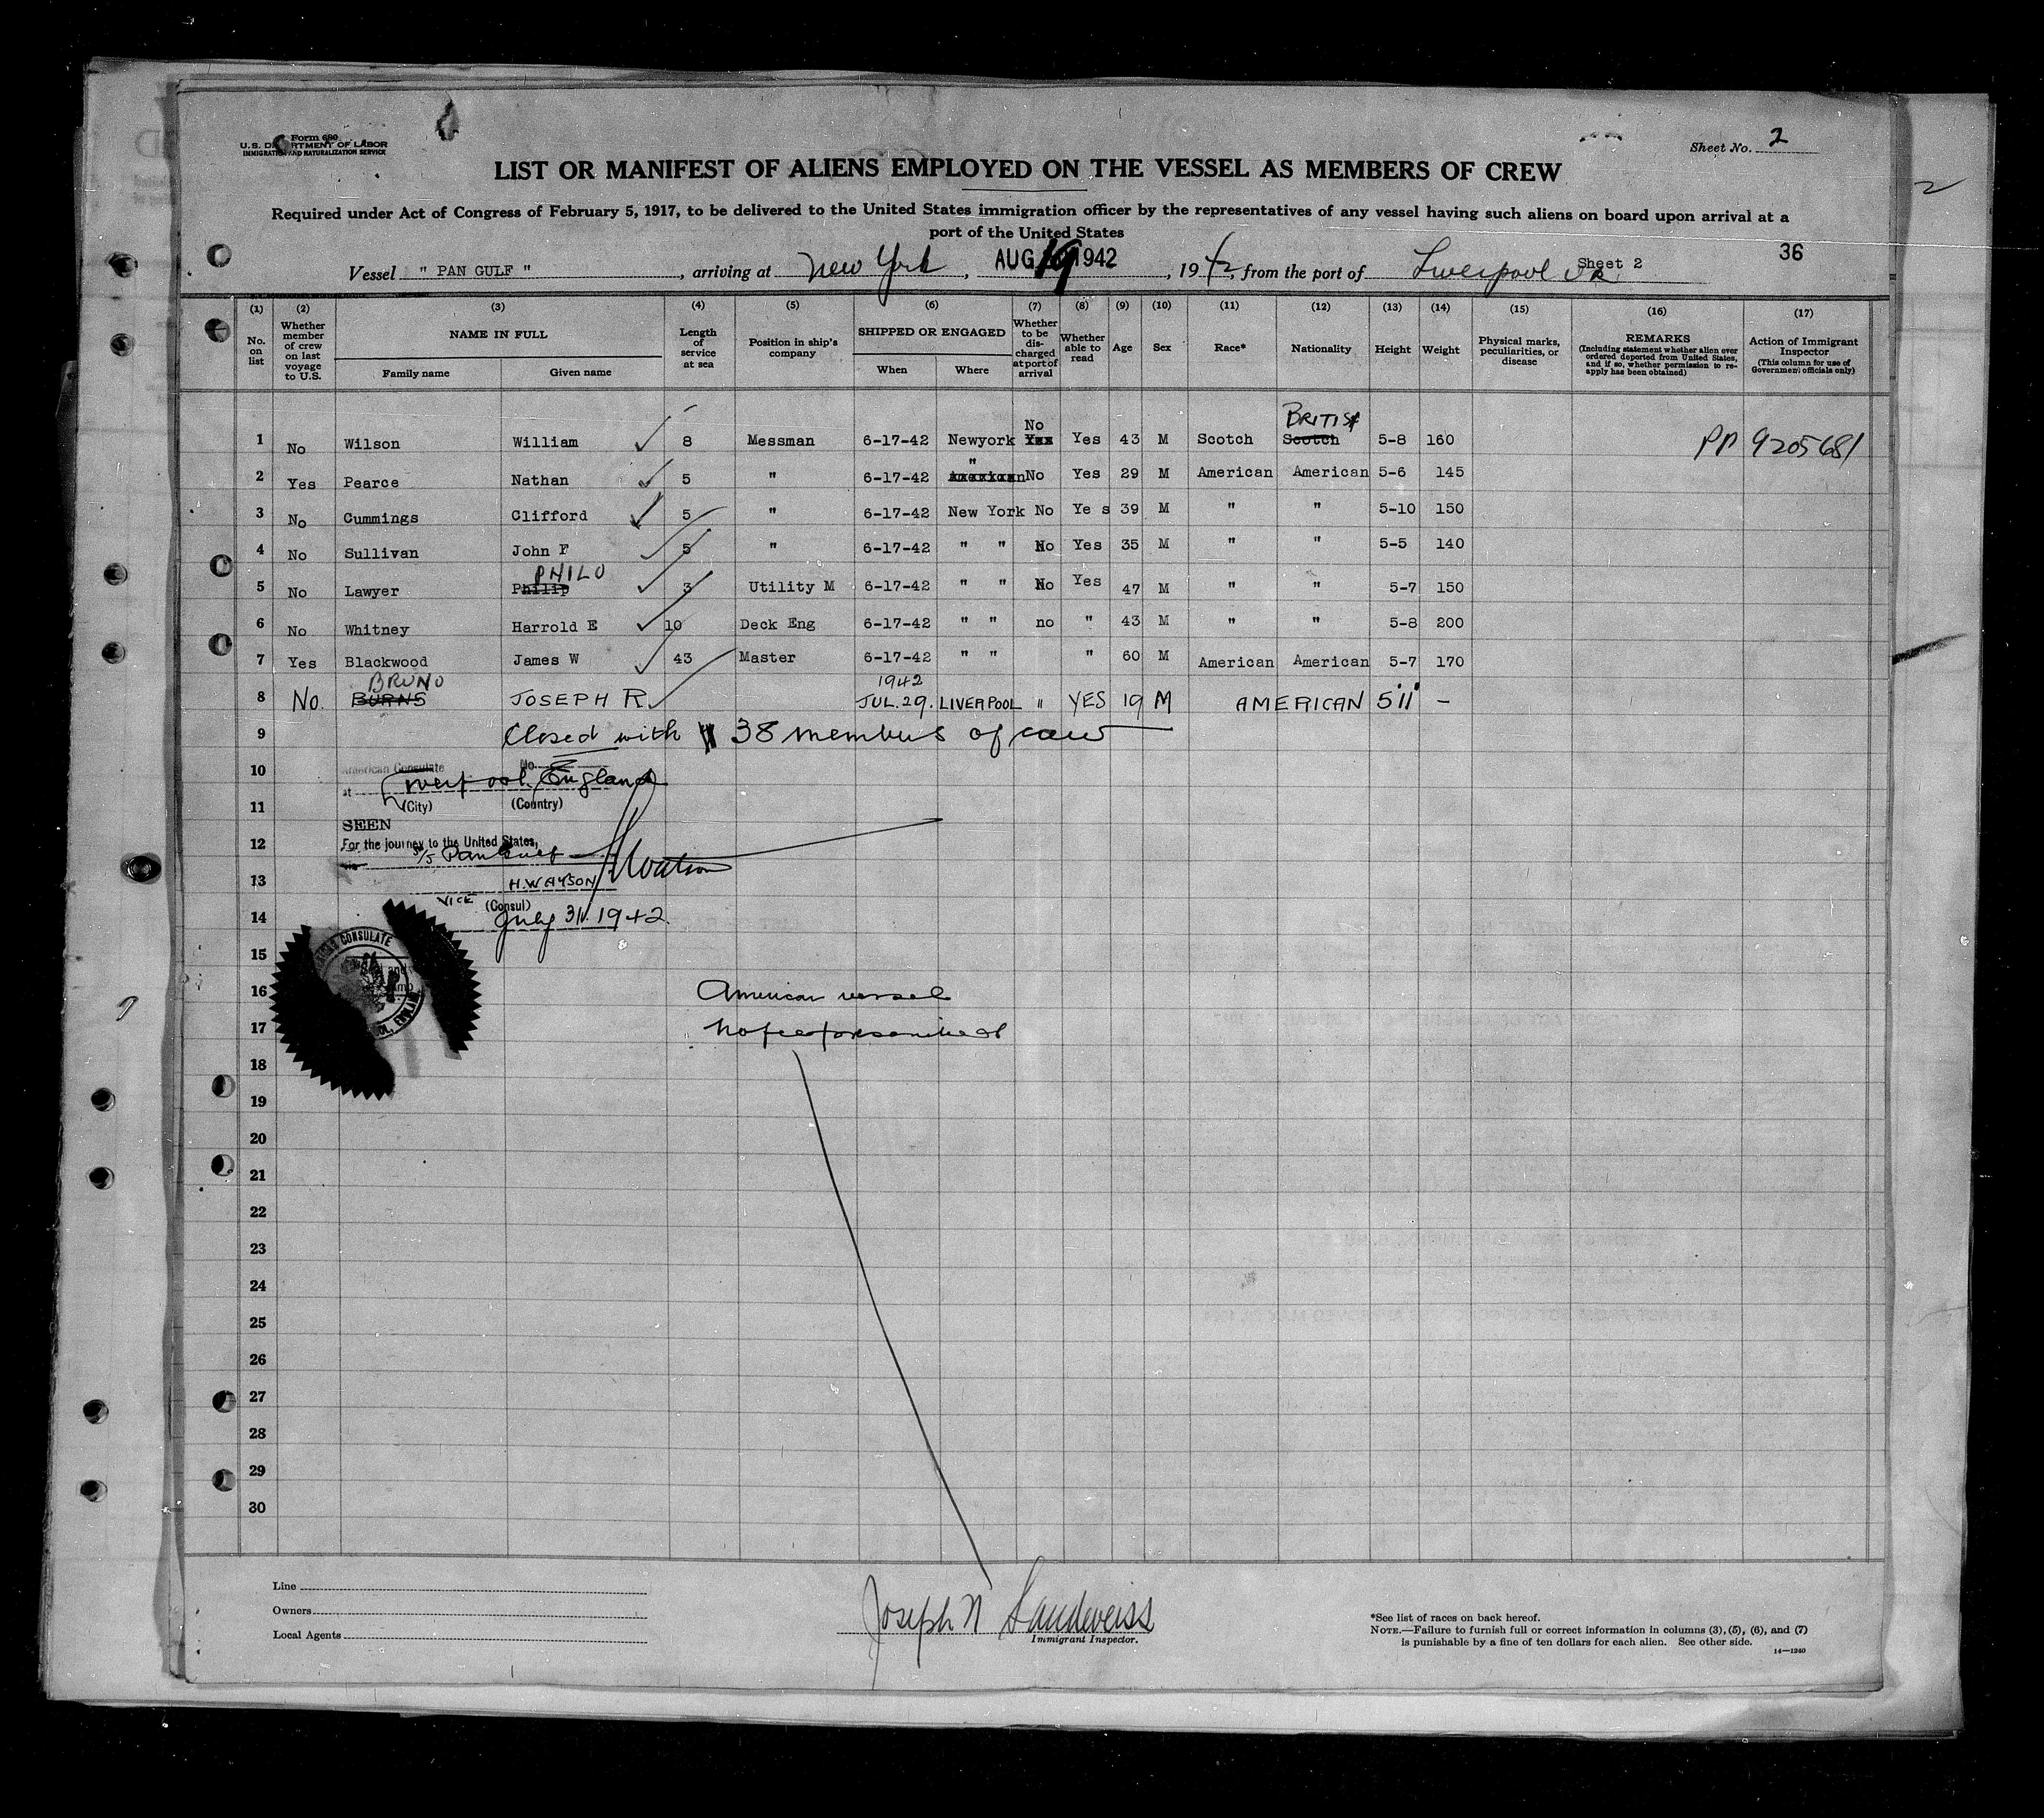 Form 680
U.S. DEPARTMENT OF LABOR
IMMIGRATION AND NATURALIZATION SERVICE
Sheet No. 2
LIST OR MANIFEST OF ALIENS EMPLOYED ON THE VESSEL AS MEMBERS OF CREW
Required under Act of Congress of February 5, 1917, to be delivered to the United States immigration officer by the representatives of any vessel having such aliens on board upon arrival at a
port of the United States
36
Sheet 2
Vessel " PAN GULF ", arriving at New York, AUG 19 1942, 1942, from the port of Liverpool
(1) (2) (3) (4) (5) (6) (7) (8) (9) (10) (11) (12) (13) (14) (15) (16) (17)
No. on list
Whether member of crew on last voyage to U.S.
NAME IN FULL
Family name
Given name
Length of service at sea
Position in ship's company
SHIPPED OR ENGAGED
When
Where
Whether to be discharged at port of arrival
Whether able to read
Age
Sex
Race*
Nationality
Height
Weight
Physical marks, peculiarities, or disease
REMARKS
(Including statement whether alien ever ordered deported from United States, and if so, whether permission to reapply has been obtained)
Action of Immigrant Inspector
(This column for use of Government officials only)
No BRITISH
1 No Wilson William 8 Messman 6-17-42 Newyork Yes Yes 43 M Scotch Scotch 5-8 160 PP 9205681
"
2 Yes Pearce Nathan 5 " 6-17-42 American No Yes 29 M American American 5-6 145
3 No Cummings Clifford 5 " 6-17-42 New York No Ye s 39 M " " 5-10 150
4 No Sullivan John F 5 " 6-17-42 " " No Yes 35 M " " 5-5 140
PHILO
5 No Lawyer Philip 3 Utility M 6-17-42 " " No Yes 47 M " " 5-7 150
6 No Whitney Harrold E 10 Deck Eng 6-17-42 " " no " 43 M " " 5-8 200
7 Yes Blackwood James W 43 Master 6-17-42 " " " 60 M American American 5-7 170
BRUNO 1942
8 No. BURNS JOSEPH R. JUL. 29. LIVERPOOL " YES 19 M AMERICAN 5'11" -
9 Closed with 38 members of crew
10 American Consulate No. 2
at Liverpool, England
11 (City) (Country)
SEEN
12 For the journey to the United States,
S/S Pan Gulf
HWatson
13 H. WATSON
VICE (Consul)
14 July 31. 1942.
AMERICAN CONSULATE
15
16 American vessel
17 No fee prescribed
18
19
20
21
22
23
24
25
26
27
28
29
30
Line
Owners
Local Agents
Joseph N Sandweiss
Immigrant Inspector.
*See list of races on back hereof.
NOTE.—Failure to furnish full or correct information in columns (3), (5), (6), and (7)
is punishable by a fine of ten dollars for each alien. See other side.
14—1240